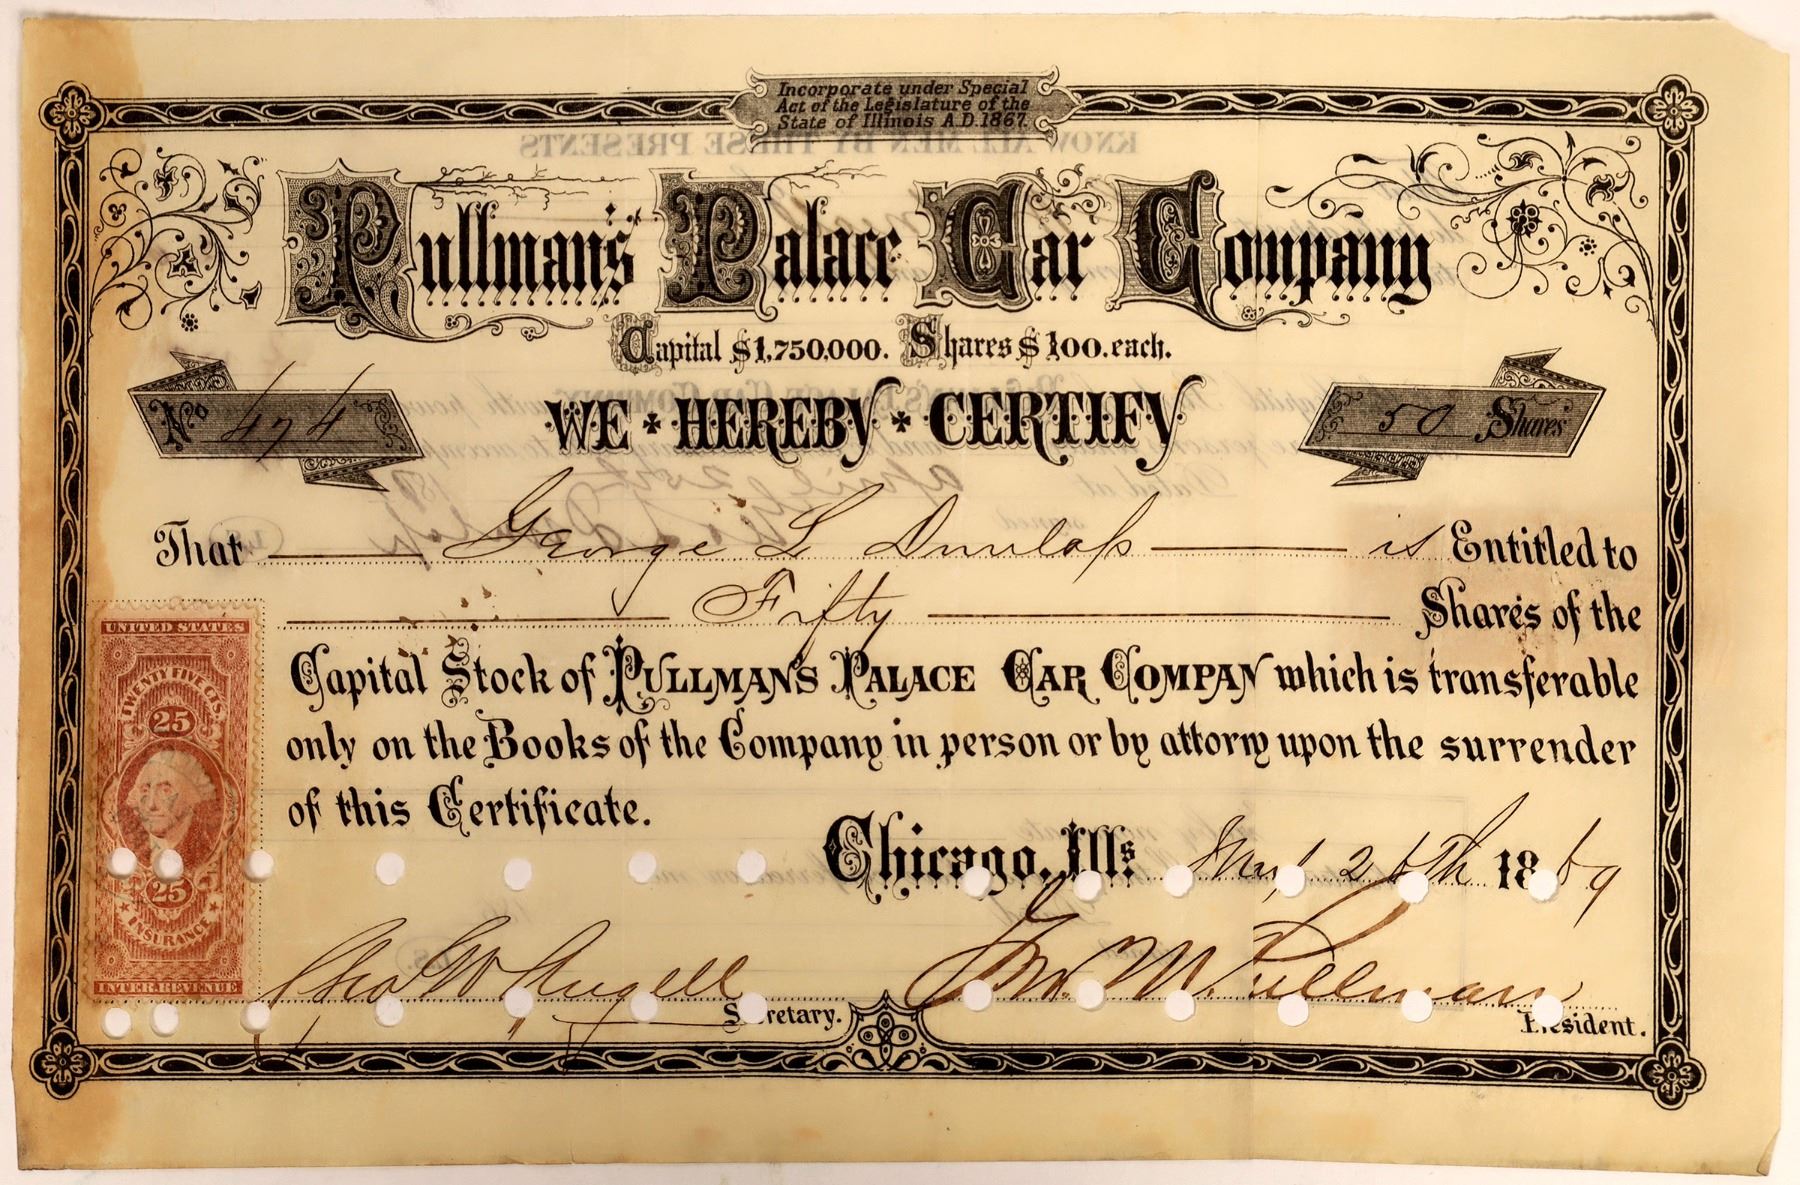 Incorporate under Special
Act of the Legislature of the
State of Illinois A.D. 1867.
KNOW ALL MEN BY THESE PRESENTS
Pullman's Palace Car Company
Capital $1,750,000. Shares $100. each.
No 474
WE HEREBY CERTIFY
50 Shares
That George L Dunlap is Entitled to
Fifty Shares of the
Capital Stock of PULLMAN'S PALACE CAR COMPANY which is transferable
only on the Books of the Company in person or by attorny upon the surrender
of this Certificate.
Chicago, Ills 1869
Geo W Angell
Secretary.
Geo M. Pullman
President.
UNITED STATES
TWENTY FIVE CTS.
25
25
INSURANCE
INTER. REVENUE